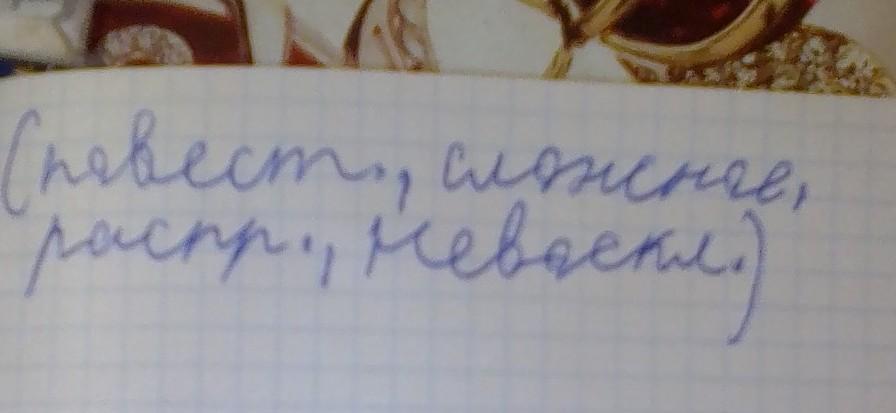 (повест., сложное,
распр., невоскл.)